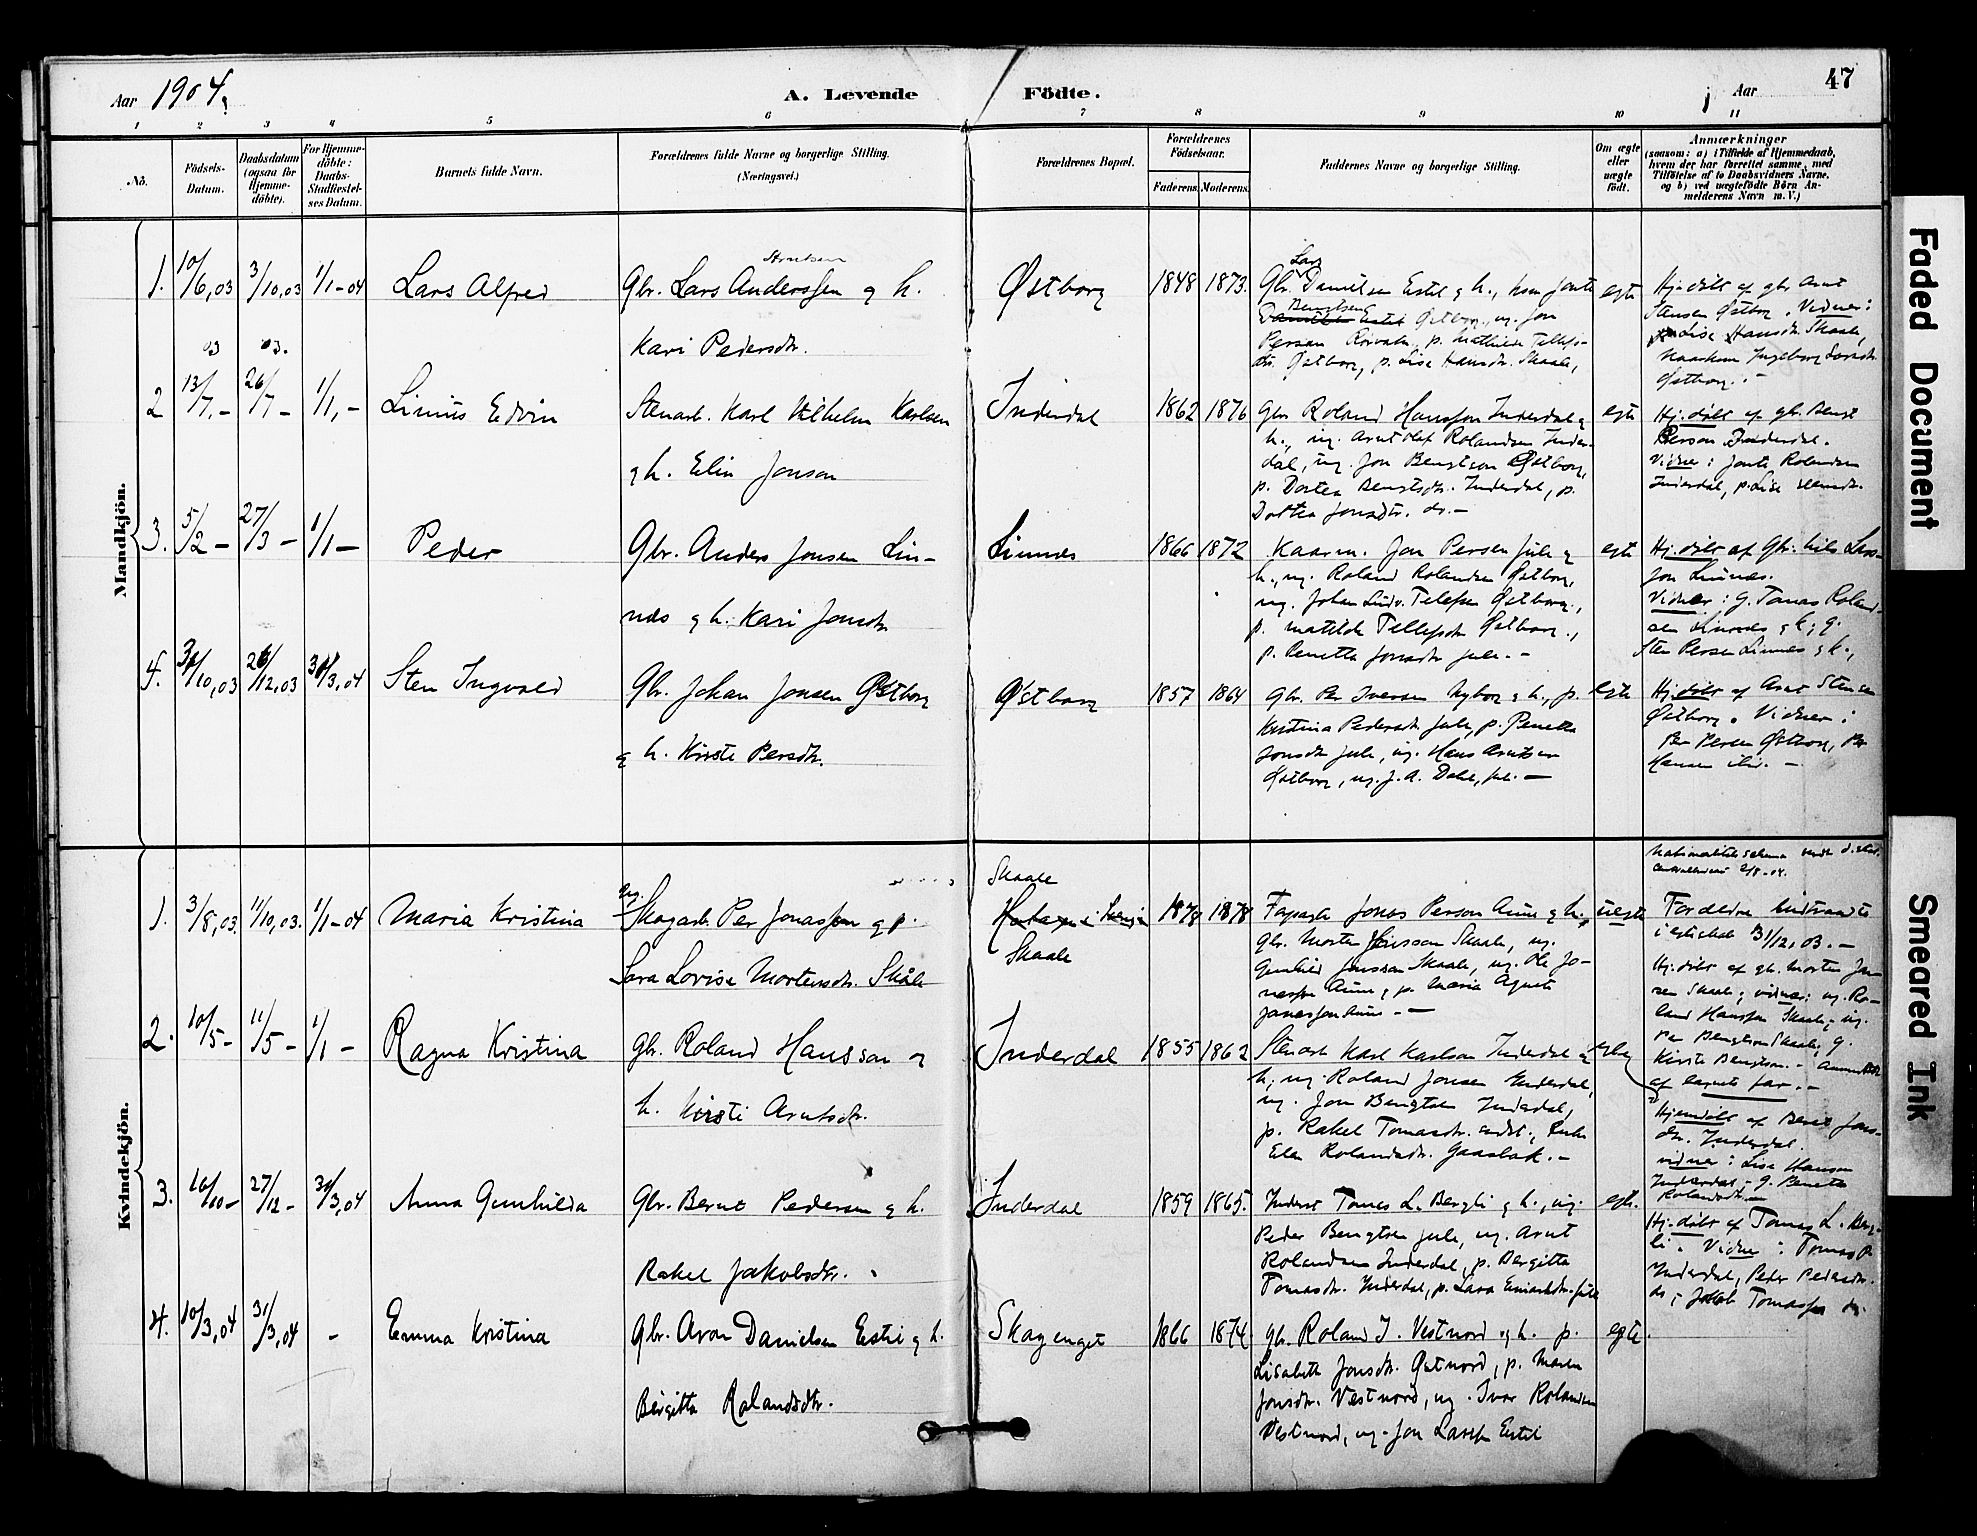 Aar 1904.
A. Levende Födte.
Aar
47
1 2 3 4 5 6 7 8 9 10 11
No.
Födsels-
Datum.
Daabsdatum
(ogsaa for
Hjemme-
döbte).
For Hjemme-
döbte:
Daabs-
Stadfæstel-
ses Datum.
Barnets fulde Navn.
Forældrenes fulde Navne og borgerlige Stilling.
(Næringsvei.)
Forældrenes Bopæl.
Forældrenes
Födselsaar.
Faderens. Moderens.
Faddernes Navne og borgerlige Stilling.
Om ægte
eller
uægte
födt.
Anmærkninger
(saasom: a) i Tilfælde af Hjemmedaab,
hvem der har forrettet samme, med
Tilföielse af to Daabsvidners Navne,
og b) ved uægtefödte Börn An-
melderens Navn m. V.)
Mandkjön.
1. 10/6,03 3/10,03 1/1-04 Lars Alfred
Gbr. Lars Anderssen g h.
Arntsen
Kari Pedersdtr.
Østborg
1848 1873.
Lars
Gbr. Danielsen Estil g h.,
Bengtsen Østborg, ug. Jon
Person, p. Mathilde Tellefs-
dtr. Østborg, p. Lise Hansdtr. Skaale,
egte
Hj. döbt af gbr. Arnt
Stensen Østborg. Vidner:
Lise Hansdtr. Skaale,
Ingeborg Larsdtr.
Østborg. -
03 03.
2 13/7,- 26/7- 1/1,- Linius Edvin
Stenarb. Karl Vilhelm Karlsen
g h. Elin Jonson
Inderdal
1862 1876
Gbr Roland Hanssen Inderdal g
h., ug. Arnt Olaf Rolandsen Inder-
dal, ug. Jon Bengtson Østborg,
p. Dortea Bengtsdtr. Inderdal, p.
Dortea Jonsdtr. do. -
egte
Hj. döbt af gbr. Bengt
Person Inderdal.
Vidner: Jonte Rolandsen
Inderdal, p. Lise
3. 5/2 - 27/3 - 1/1 - Peder
Gbr. Anders Jonsen Lin-
næs g h. Kari Jonsdtr
Linnæs
1866 1872
Kaarm. Jon Persen Jule g
h., ug. Roland Rolandsen Østborg,
ug. Johan Ludv. Tellefsen Østborg,
p. Matilde Tellefsdtr Østborg.,
p. Benetta Jonsdtr Jule. -
egte
Hj. döbt af Gbr. Nils Lars-
son Linnæs.
Vidner: G. Tomas Roland-
sen Linnæs g h; g.
Sten Persen Linnæs g h.,
4. 30/10,03 26/12,03 30/3,04 Sten Ingvald
Gbr. Johan Jonsen Østborg
g h. Kirste Persdtr.
Østborg
1857 1864
Gbr. Per Iversen Nyborg g h., p.
Kristina Pedersdtr. Jule, p. Benetta
Jonsdtr Jule, ug. Hans Arntsen
Østborg, ug. J. A. Dahl, Jule. -
egte
Hj. döbt af Arnt Stensen
Østborg. Vidner:
Per Persen Østborg, Per
Hansen ibid. -
Kvindekjön.
1. 3/8,03. 11/10,03. 1/1-04 Maria Kristina
Ug.
Skogarb. Per Jonassen g p.
Sara Lovise Mortensdtr. Skåle
Skaale
Skaale
1878 1878
Jonas Person Aune g h.,
gbr. Morten Jonsson Skaale, ug.
Gunhild Jonsson Skaale, ug. Ole Jo-
nassen Aune, g p. Maria Agneta
Jonassen Aune. -
uegte
Nationalitetsskema
2/8-04.
Forældre indtraadte
i egteskab 31/12,03. -
Hj. döbt af gbr. Morten Jon-
sen Skaale; vidner: ug. Ro-
land Hanssen Skaale, ug.
Per Bengtson Skaale, g.
Kirste Bengtson. -
af barnets far. -
2. 10/5- 11/5 - 1/1 - Ragna Kristina
Gbr. Roland Hansson g
h. Kirsti Arntsdtr.
Inderdal
1855 1862
Stenarb Karl Karlson Inderdal g
h, ug. Roland Jonsen Inderdal,
ug. Jon Bengtsen Inderdal,
p. Rakel Tomasdtr.
Elen Rolandsdtr. Gaasbak. -
Hjemdöbt af Beret Jons-
dtr. Inderdal.
Vidner: Lise Hanson
Inderdal, - g. Benetta
Rolandsdtr. -
3. 16/10- 27/12- 30/3,04 Anna Gunhilda
Gbr. Bernt Pedersen g h.
Rakel Jakobsdtr.
Inderdal
1859 1865.
Inderst Tomas L. Bergli g h., ug.
Peder Bengtsen Jule, ug. Arnt
Rolandsen Inderdal, p. Bergitta
Tomasdtr. Inderdal, p. Sara
egte.
Hj. döbt af Tomas L. Berg-
li. Vidner: Tomas P.
Inderdal, Peder Pedersdtr.
do, Jakob Tomassen do.
4. 10/3,04 31/3,04 - Emma Kristina
Gbr. Aron Danielsen Estil g h.
Birgitta Rolandsdtr.
Skogenget
1866 1874
gbr. Roland J. Vestnord g h. p.
Lisabeth Jonsdtr. Østnord, p. Maren
Jonsdtr. Vestnord, ug. Ivar Rolandsen
Vestnord, ug. Jon Larsen Estil
egte.
Faded Document
Smeared Ink